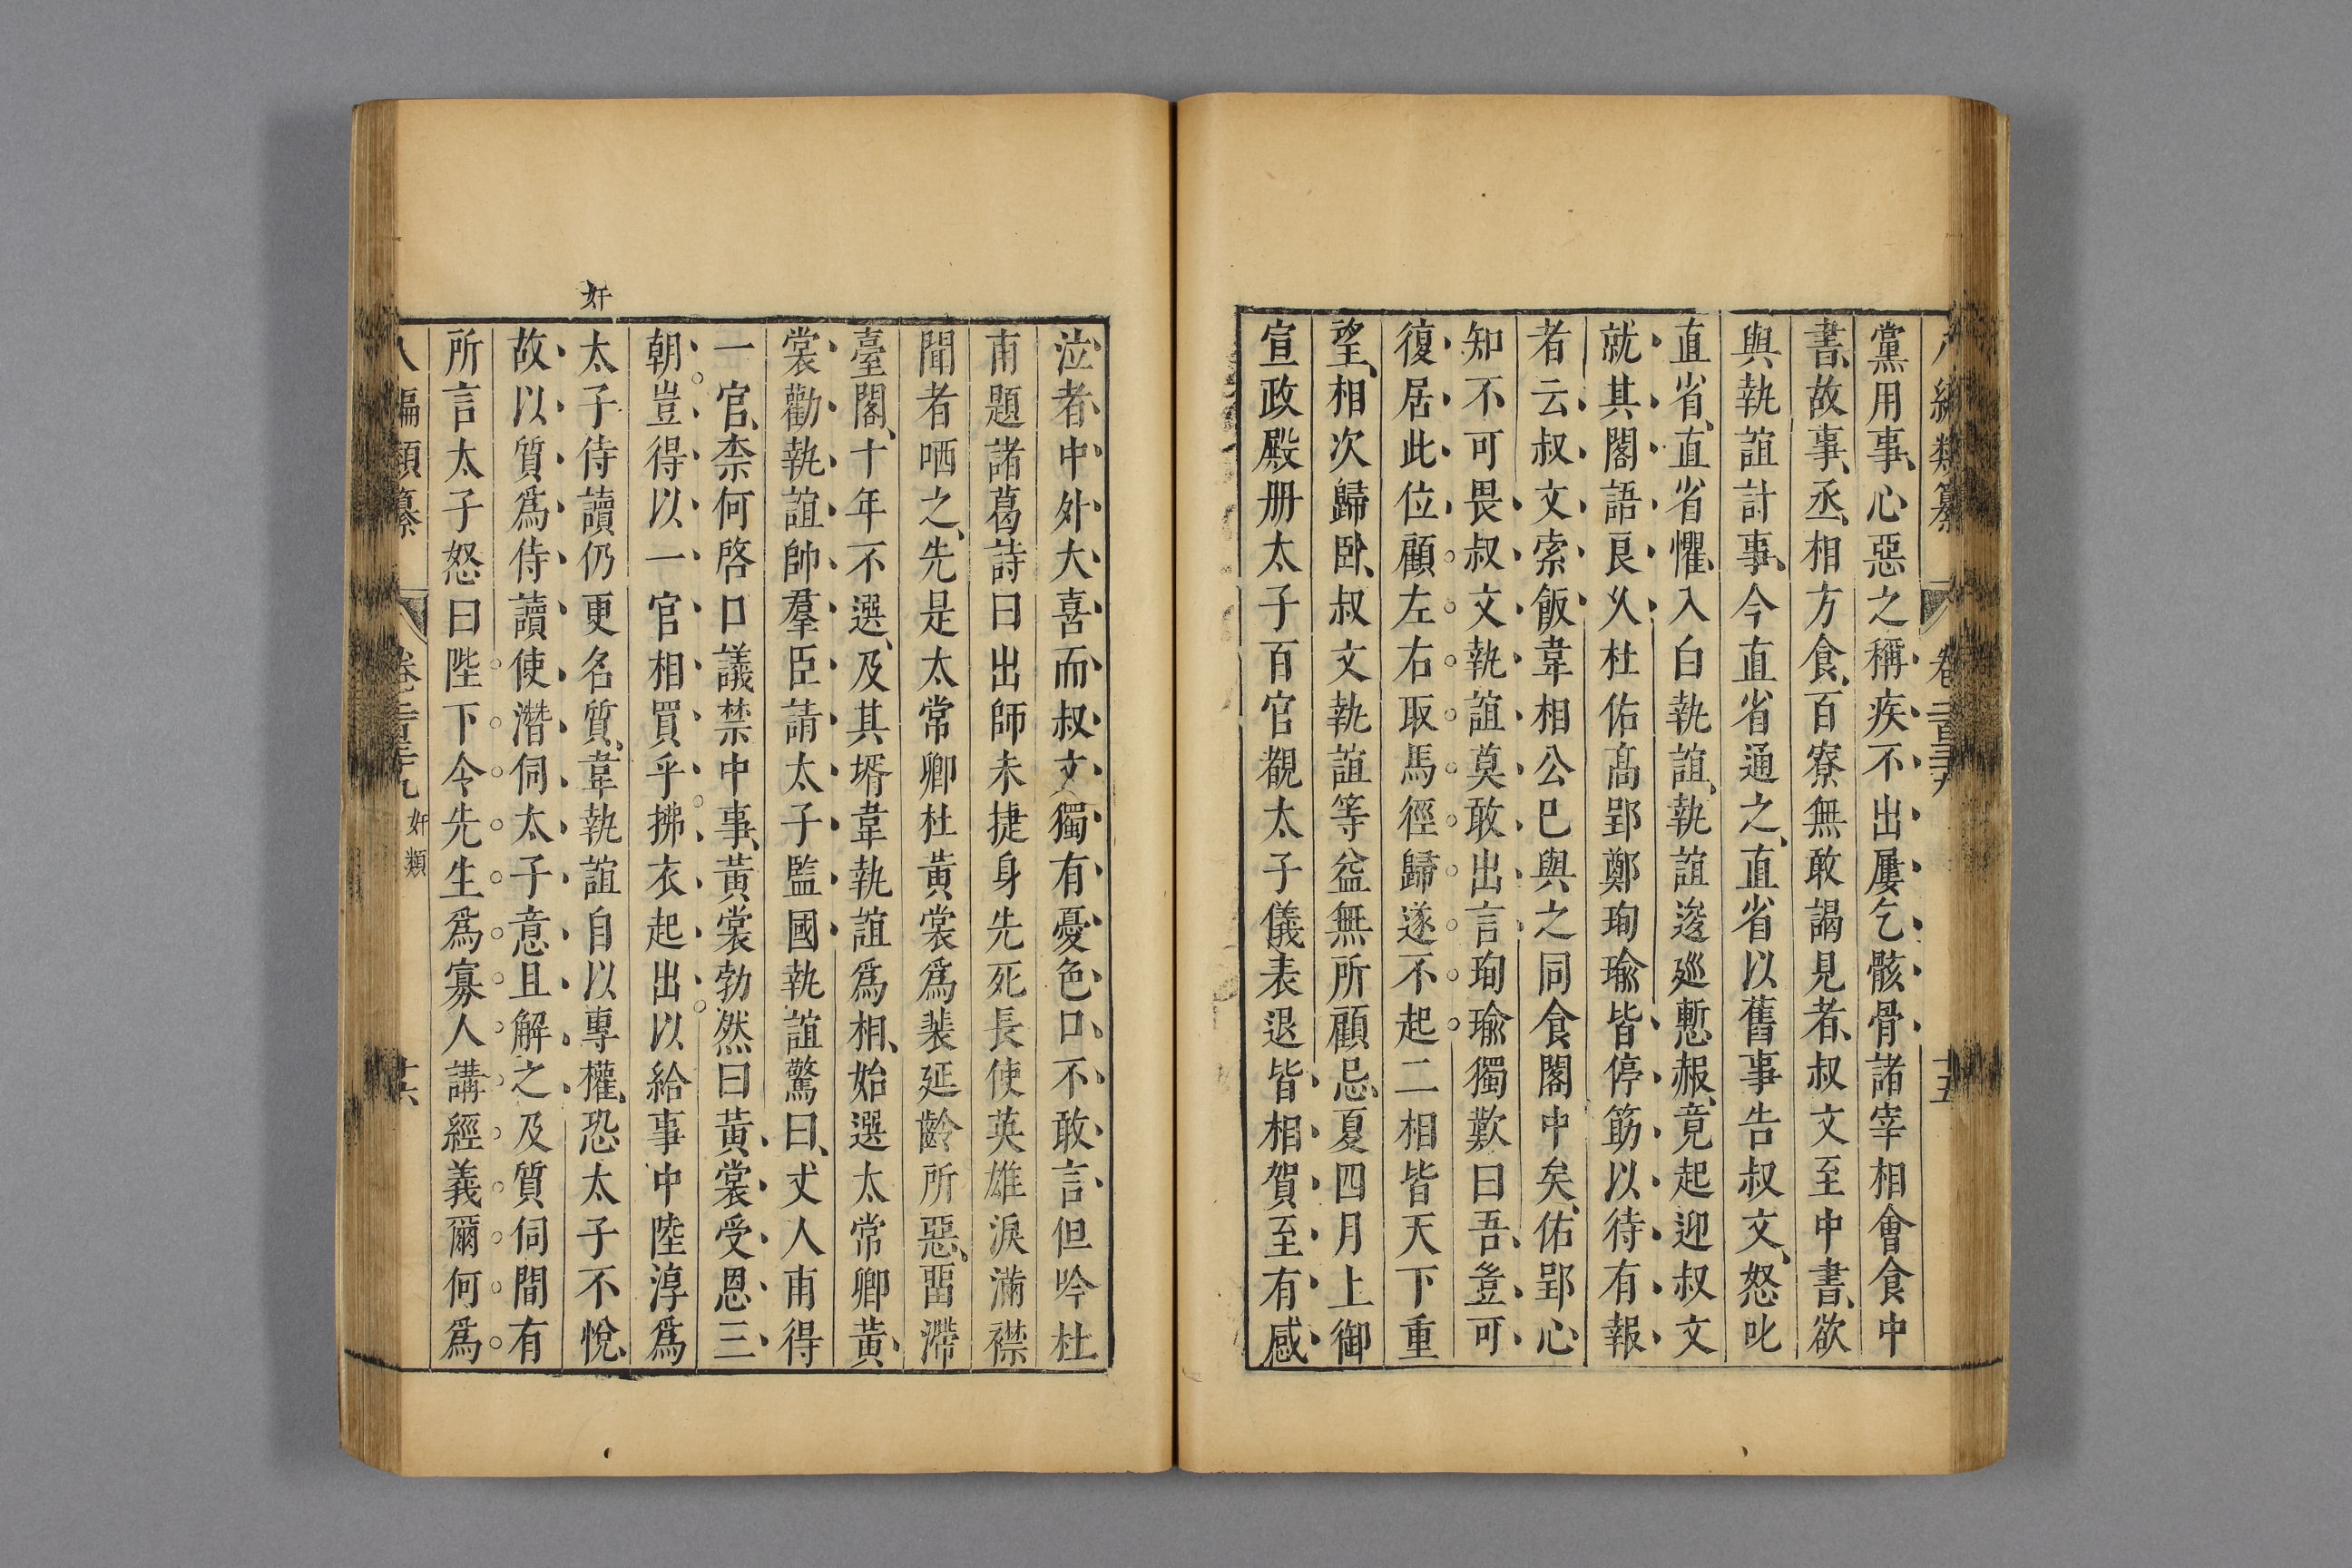 八編類纂 卷二百三十九 十五
黨用事心惡之稱疾不出屢乞骸骨諸宰相會食中
書故事丞相方食百寮無敢謁見者叔文至中書欲
與執誼計事令直省通之直省以舊事告叔文怒叱
直省直省懼入白執誼執誼逡巡慙赧竟起迎叔文
就其閣語良乆杜佑高郢鄭珣瑜皆停筯以待有報
者云叔文索飯韋相公已與之同食閣中矣佑郢心
知不可畏叔文執誼莫敢出言珣瑜獨歎曰吾豈可
復居此位顧左右取馬徑歸遂不起二相皆天下重
望相次歸臥叔文執誼等益無所顧忌夏四月上御
宣政殿册太子百官覩太子儀表退皆相賀至有感
泣者中外大喜而叔文獨有憂色口不敢言但吟杜
甫題諸葛詩曰出師未捷身先死長使英雄淚滿襟
聞者哂之先是太常卿杜黃裳爲裴延齡所惡畱滯
臺閣十年不選及其壻韋執誼爲相始選太常卿黃
裳勸執誼帥羣臣請太子監國執誼驚曰丈人甫得
一官柰何啓口議禁中事黃裳勃然曰黃裳受恩三
朝豈得以一官相買乎拂衣起出以給事中陸淳爲
奸
太子侍讀仍更名質韋執誼自以專權恐太子不悅
故以質爲侍讀使潛伺太子意且解之及質伺間有
所言太子怒曰陛下令先生爲寡人講經義爾何爲
八編類纂 卷二百三十九 奸類 十六